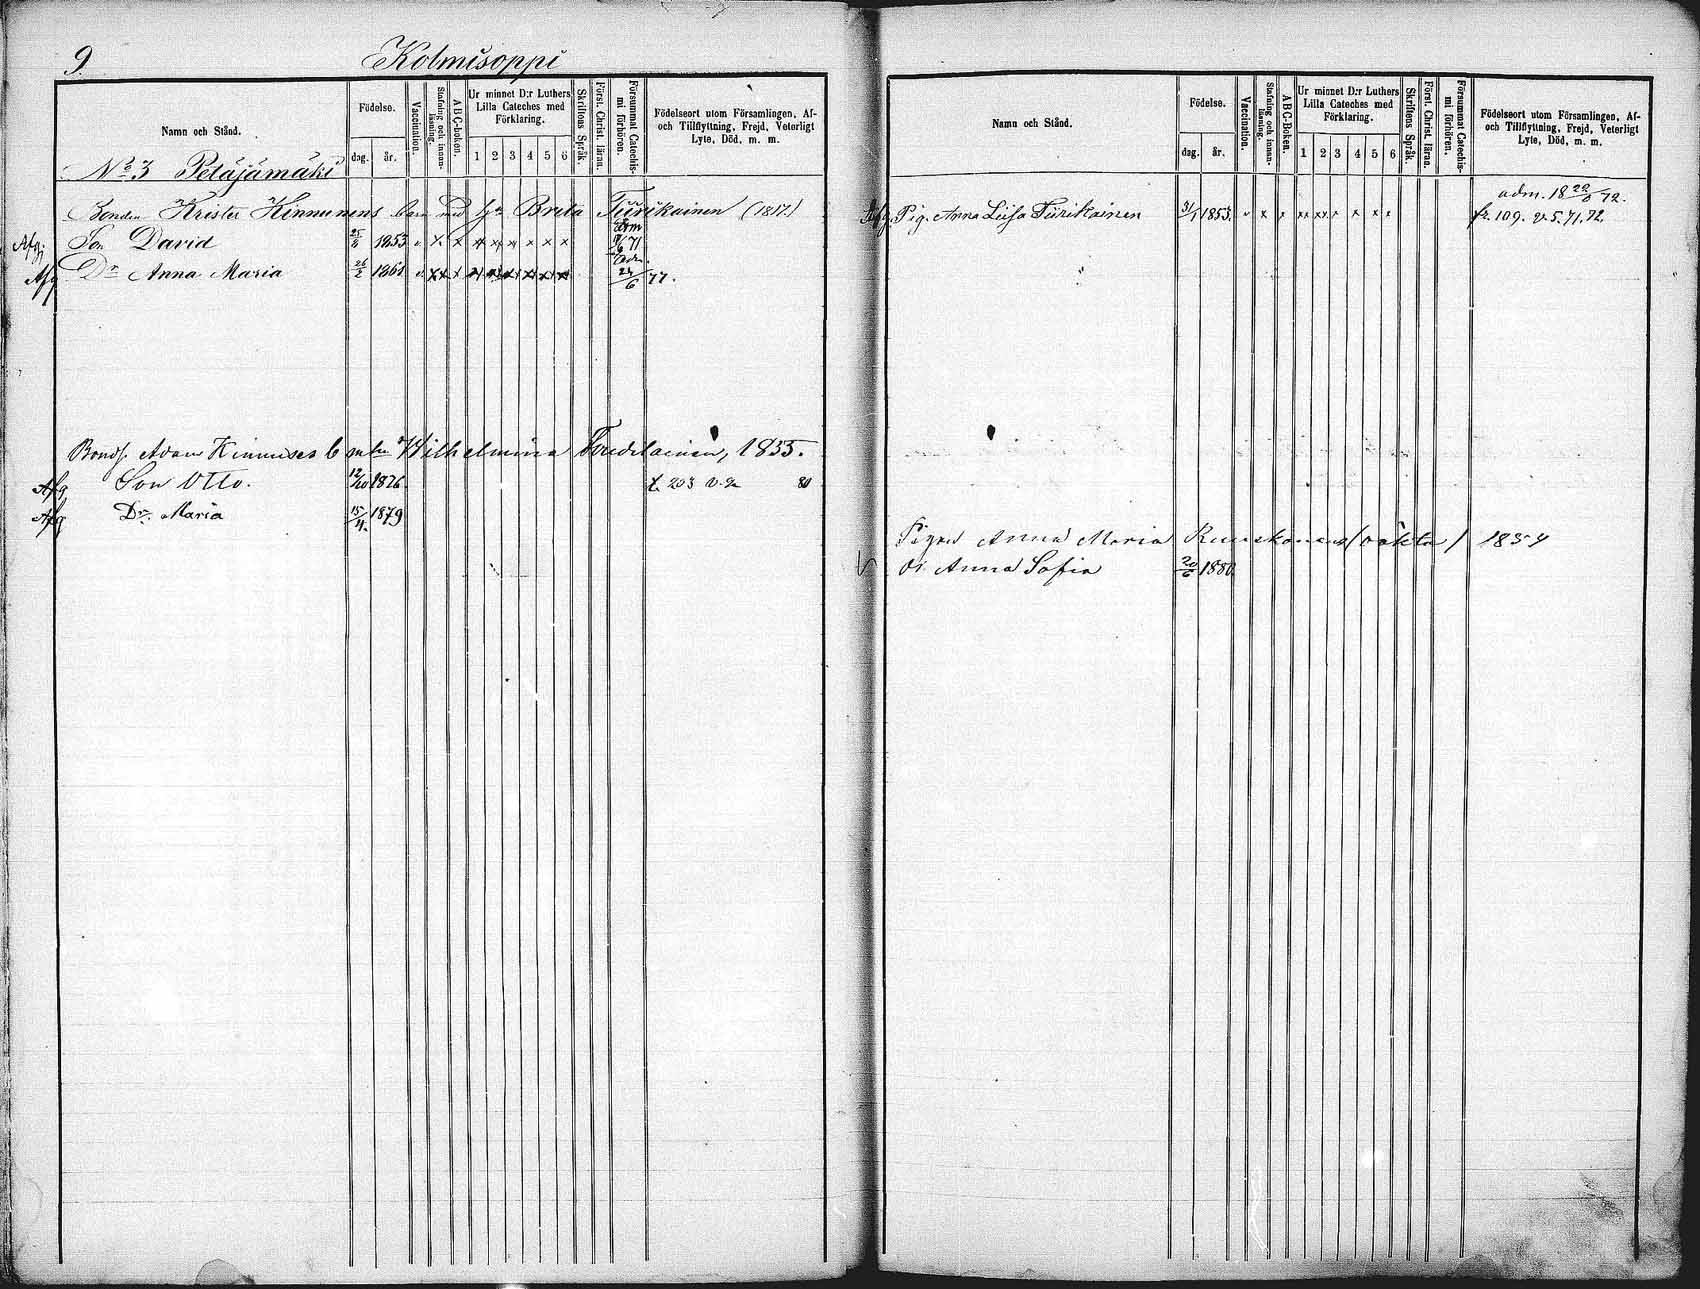 9.
Kolmisoppi
Namn och Stånd.
Födelse.
dag. år.
Vaccination.
Stafning och innan-läsning.
A B C-boken.
Ur minnet D:r Luthers Lilla Cateches med Förklaring.
1 2 3 4 5 6
Skriftens Språk.
Först. Christ. läran.
Försummat Catechis-mi förhören.
Födelseort utom Församlingen, Af- och Tillflyttning, Frejd, Veterligt Lyte, Död, m. m.
No 3 Petäjämäki
Bonden Krister Kinnunens barn med h:u Brita Tiirikainen (1817.)
Afg. Son David 25/8 1853 v x x x x x x x x Adm 71
Afg Dr Anna Maria 26/2 1861 v xx x Adm. 24/6 77.
Bonds. Adam Kinnuses b m hu Wilhelmina 1855.
Afg Son Otto. 12/10 1876 203 80
Afg Dr. Maria 15/4. 1879
Namn och Stånd.
Födelse.
dag. år.
Vaccination.
Stafning och innan-läsning.
A B C-Boken.
Ur minnet D:r Luthers Lilla Cateches med Förklaring.
1 2 3 4 5 6
Skriftens Språk.
Först. Christ. läran.
Försummat Catechis-mi förhören.
Födelseort utom Församlingen, Af- och Tillflyttning, Frejd, Veterligt Lyte, Död, m. m.
adm. 18 72.
Afg. Pig. Anna Lisa Tiirikainen 31/1 1853. v x x xx xx x x x x fr. 109. v. 5. 71. 72.
Pigan Anna Maria (oäkta) 1854
Anna Sofia 20/6 1880.